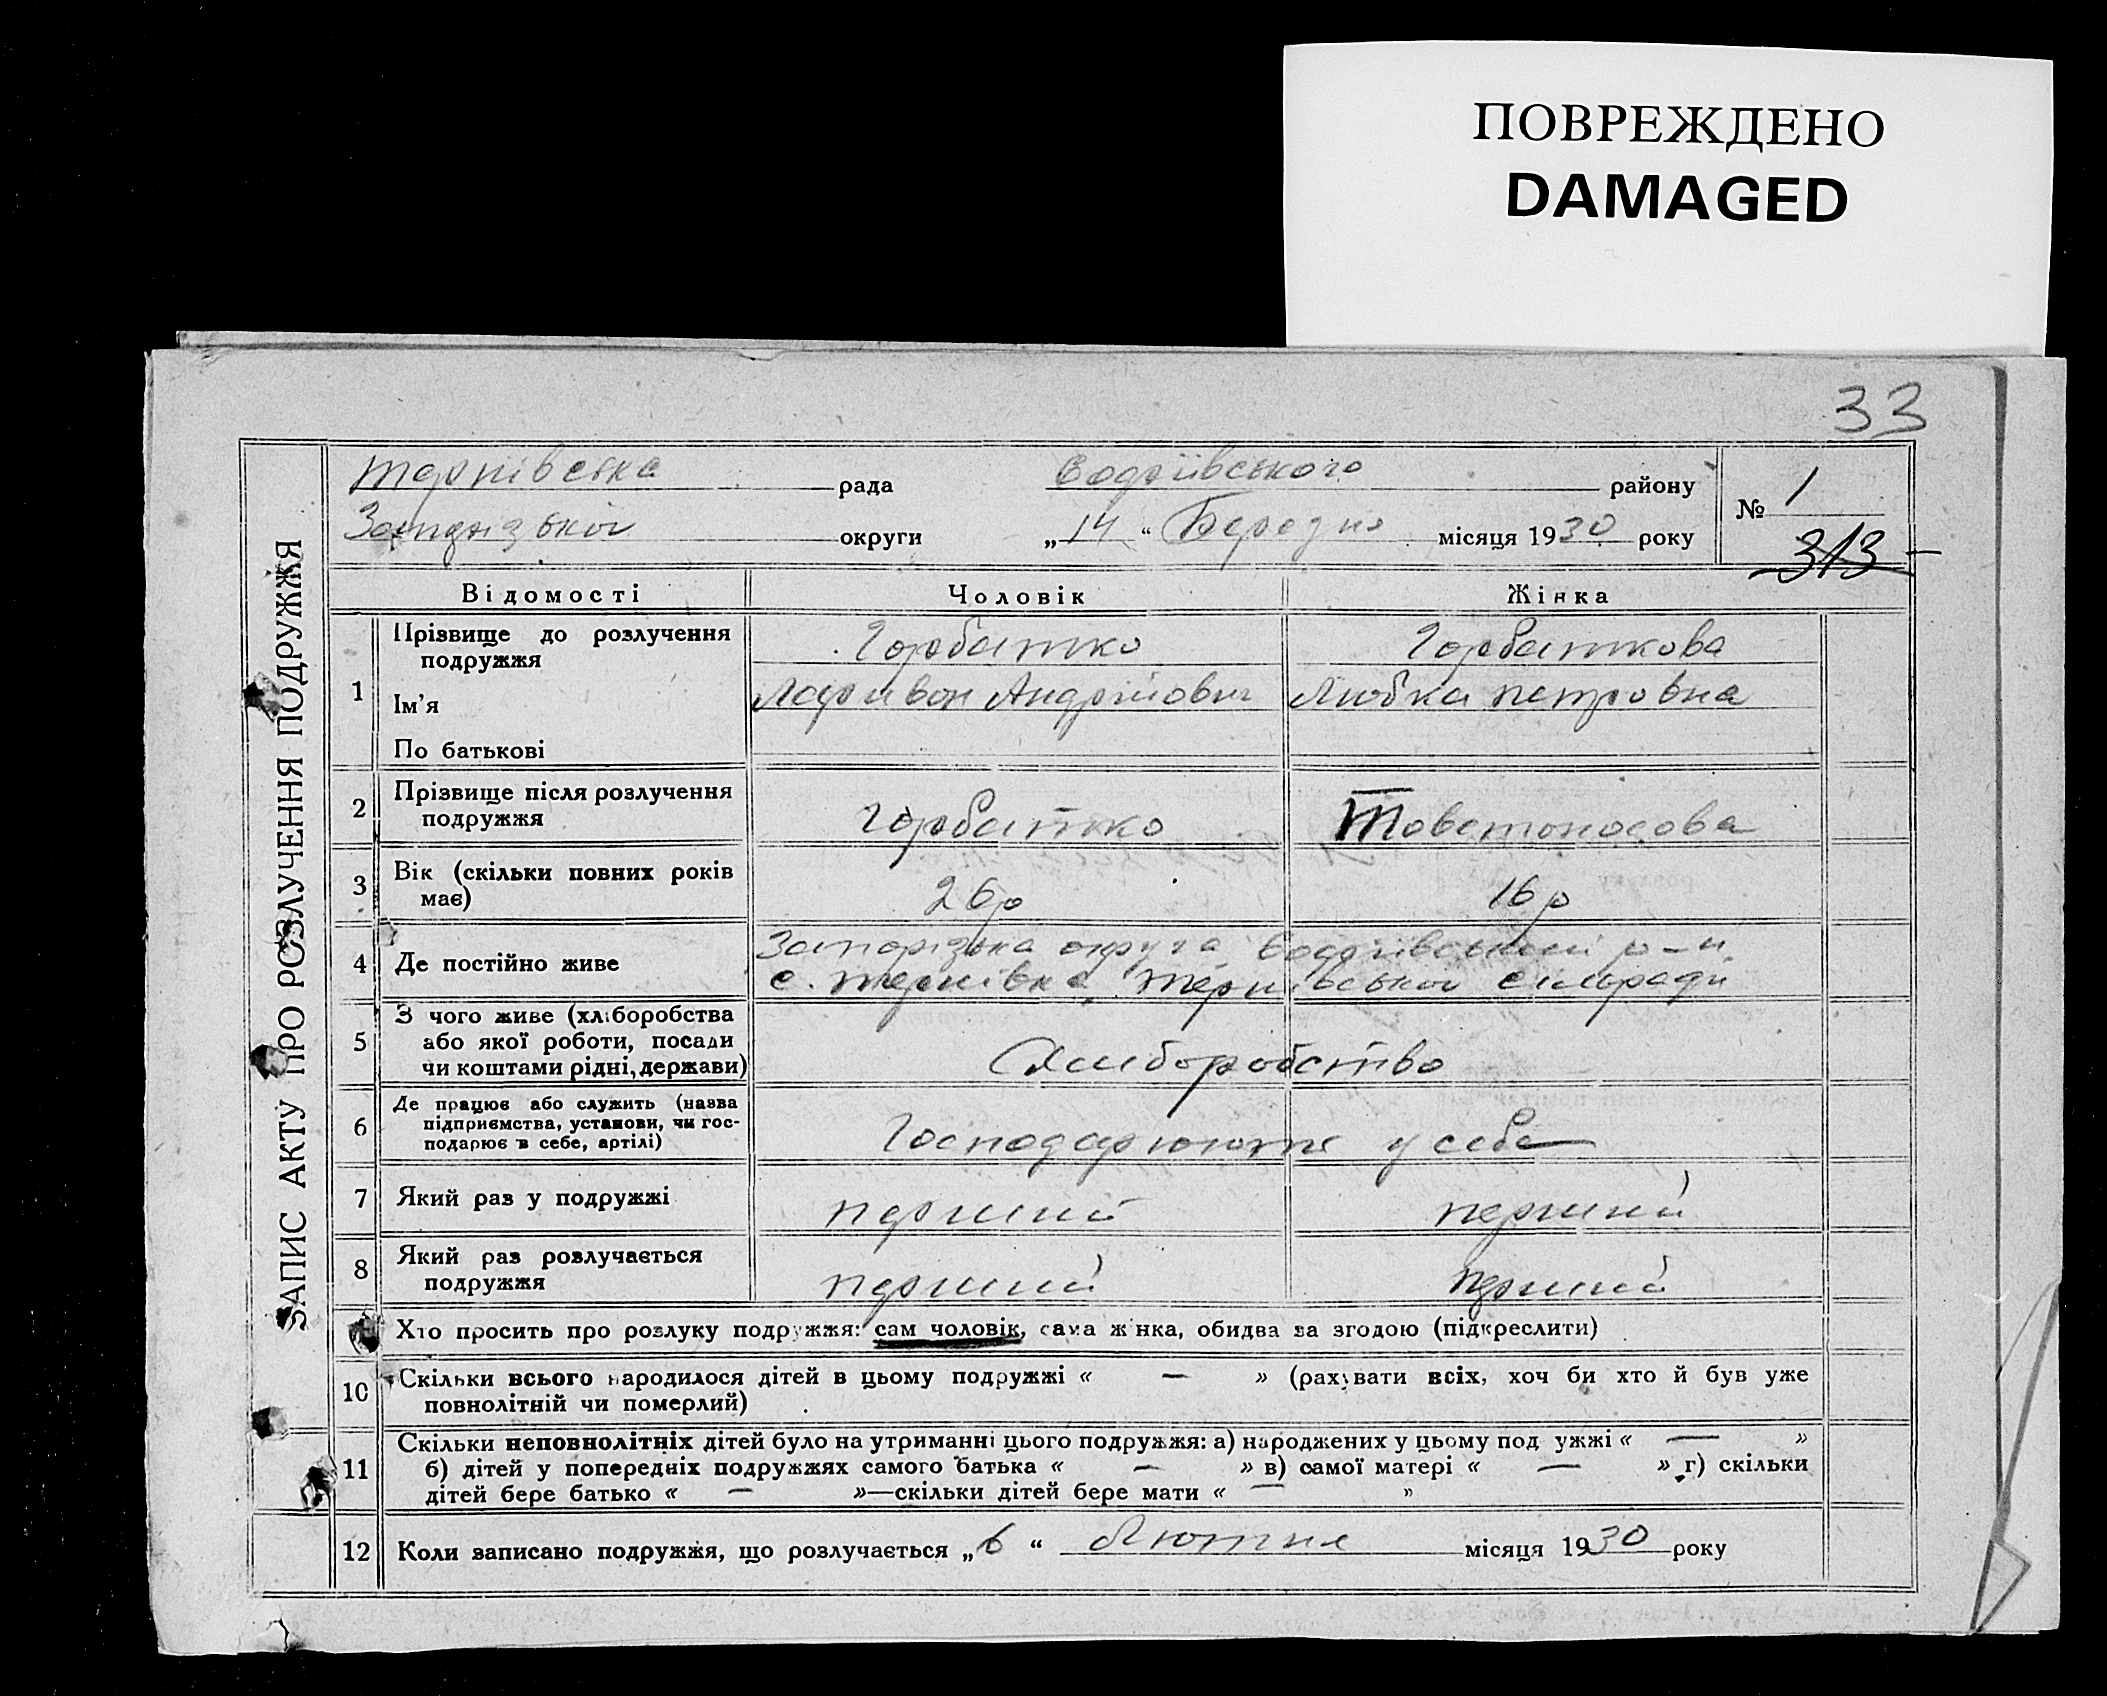 ПОВРЕЖДЕНО
DAMAGED
33
ЗАПИС АКТУ ПРО РОЗЛУЧЕННЯ ПОДРУЖЖЯ
Терпівська рада Водяівського району № 1
округи „14“ Березня місяця 1930 року
313
Відомості Чоловік Жінка
1 Прізвище до розлучення Горбатко Горбаткова
подружжя
Ім’я Ларивон Андрійович Любка петровна
По батькові
2 Прізвище після розлучення
подружжя Горбатко Товстоносова
3 Вік (скільки повних років
має) 26р 16р
4 Де постійно живе Запорізька округа р-н
с. Терпівка Терпівської сільради
5 З чого живе (хліборобства
або якої роботи, посади
чи коштами рідні, держави) Хліборобство
6 Де працює або служить (назва
підприємства, установи, чи гос-
подарює в себе, артілі) Господарюють у себе
7 Який раз у подружжі перший перший
8 Який раз розлучається
подружжя перший перший
Хто просить про розлуку подружжя: сам чоловік, сама жінка, обидва за згодою (підкреслити)
10 Скільки всього народилося дітей в цьому подружжі « — » (рахувати всіх, хоч би хто й був уже
повнолітній чи померлий)
11 Скільки неповнолітніх дітей було на утриманні цього подружжя: а) народжених у цьому подружжі « — »
б) дітей у попередніх подружжях самого батька « — » в) самої матері « — » г) скільки
дітей бере батько « — »—скільки дітей бере мати « — »
12 Коли записано подружжя, що розлучається „6“ Лютня місяця 1930 року